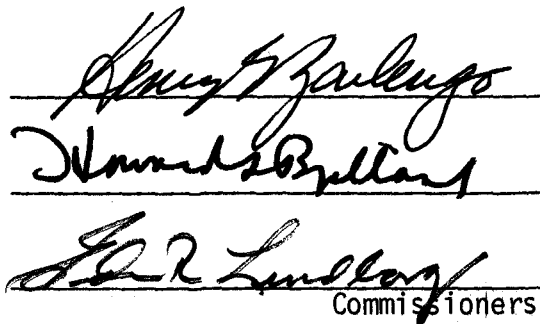 Henry E Zarlengo
Howard S Bjelland
Edwin R Lundborg
Commissioners